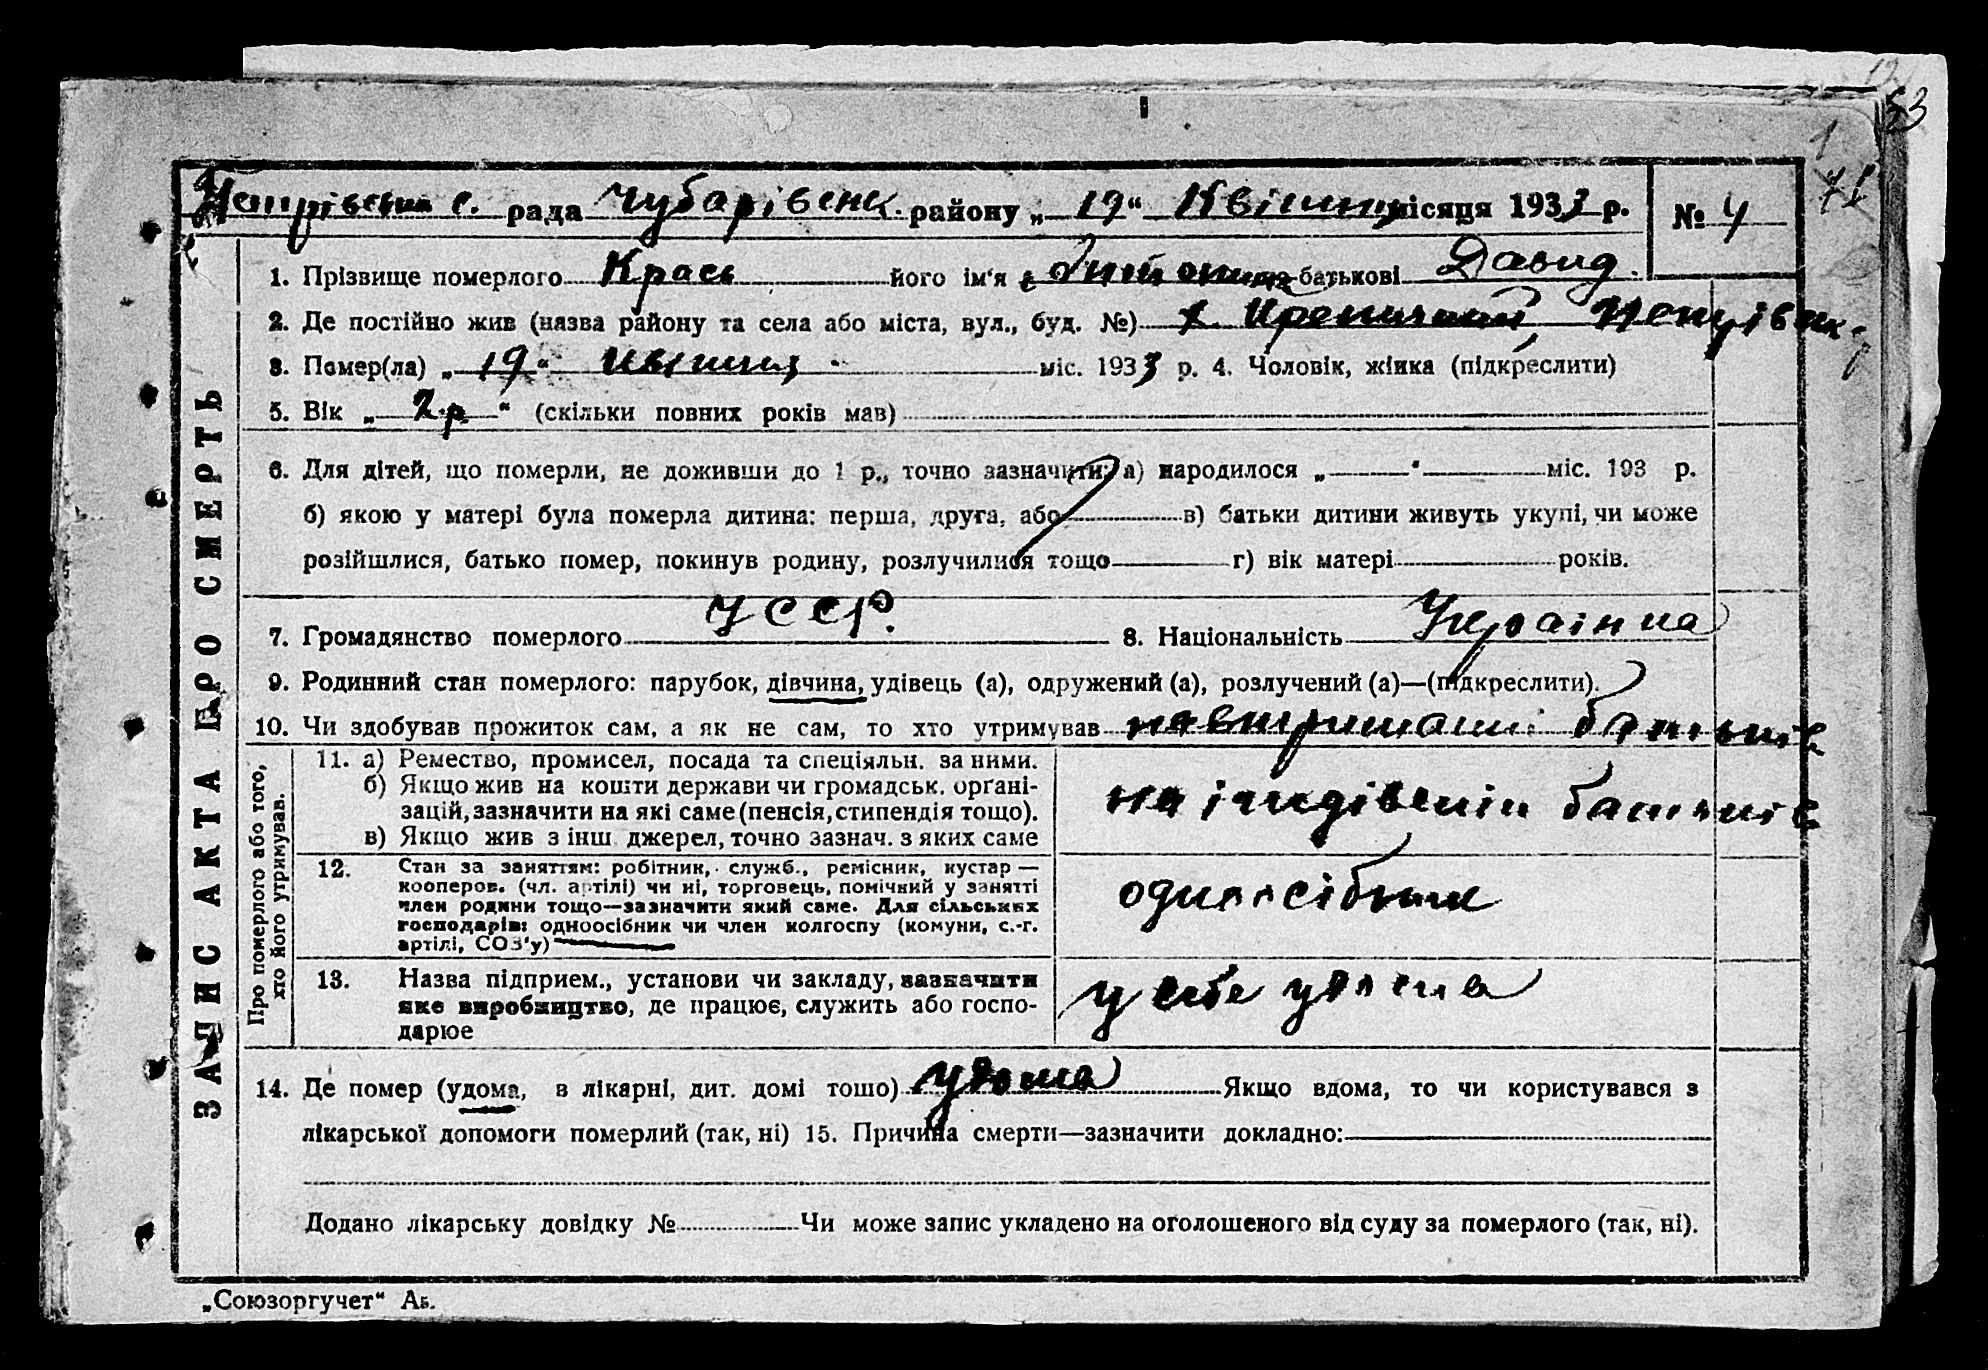 53
71
рада Чубарівськ. району „ 19 “ Квітня місяця 1933 р. № 4
1. Прізвище померлого Крась його ім'я по-батькові Давид.
2. Де постійно жив (назва району та села або міста, вул., буд. №) х.
3. Помер(ла) „ 19 “ міс. 1933 р. 4. Чоловік, жінка (підкреслити)
5. Вік „ 2 р. “ (скільки повних років мав)
6. Для дітей, що померли, не доживши до 1 р., точно зазначити: а) народилося „ “ міс. 193 р.
б) якою у матері була померла дитина: перша, друга, або в) батьки дитини живуть укупі, чи може
розійшлися, батько помер, покинув родину, розлучилися тощо г) вік матері років.
7. Громадянство померлого УССР. 8. Національність Українка
9. Родинний стан померлого: парубок, дівчина, удівець (а), одружений (а), розлучений (а)—(підкреслити).
10. Чи здобував прожиток сам, а як не сам, то хто утримував на втриманні батьків
ЗАПИС АКТА ПРО СМЕРТЬ
Про померлого або того,
хто його утримував.
11. а) Ремество, промисел, посада та спеціяльн. за ними.
б) Якщо жив на кошти держави чи громадськ. орґані-
зацій, зазначити на які саме (пенсія, стипендія тощо).
в) Якщо жив з інш джерел, точно зазнач. з яких саме
на батьків
12. Стан за заняттям: робітник, служб., ремісник, кустар —
кооперов. (чл. артілі) чи ні, торговець, помічний у занятті
член родини тощо—зазначити який саме. Для сільських
господарів: одноосібник чи член колгоспу (комуни, с.-г.
артілі, СОЗ'у)
одноосібник
13. Назва підприєм., установи чи закладу, зазначити
яке виробництво, де працює, служить або госпо-
дарює
у себе удома
14. Де помер (удома, в лікарні, дит. домі тошо) удома Якщо вдома, то чи користувався з
лікарської допомоги померлий (так, ні) 15. Причина смерти—зазначити докладно:
Додано лікарську довідку № Чи може запис укладено на оголошеного від суду за померлого (так, ні).
„Союзоргучет“ Ав.